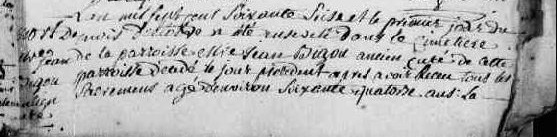 L'an mil sept cent soixante seise et le premier jour du
mois d'octobre a été enseveli dans le cimetiere
de la parroisse Mre Jean Dugou ancien curé de cette
parroisse decedé le jour précedent apres avoir Receu tous les
Sacremens agé denviron soixante quatorse ans La